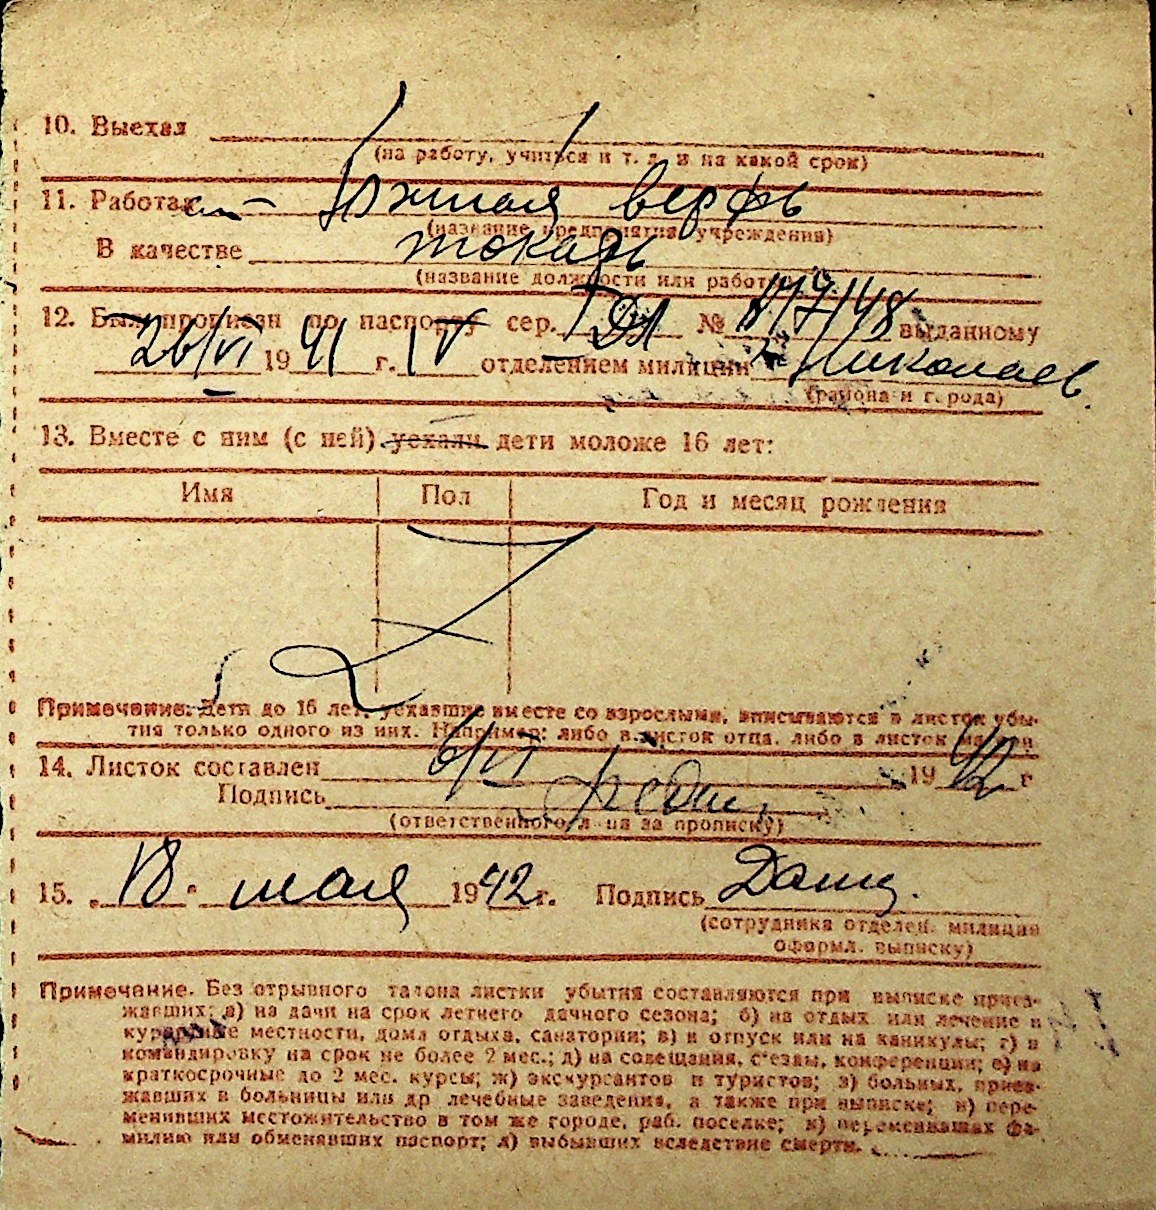 10. Выехал
(на работу, учиться и т. д. и на какой срок)
11. Работал Южная верфь
(название предприятия, учреждения)
В качестве токарь
(название должности или работы)
12. Был прописан по паспорту сер. № 717148 выданному
26/VI 1941 г. IV отделением милиции г. Николаев
(района и города)
13. Вместе с ним (с ней) уехали дети моложе 16 лет:
Имя Пол Год и месяц рождения
Примечание. Дети до 16 лет, уехавшие вместе со взрослыми, вписываются в листок убы-
тия только одного из них. Например: либо в листок отца, либо в листок матери
14. Листок составлен 6/VI 1942 г
Подпись
(ответственного лица за прописку)
15. „18“ мая 1942 г. Подпись
(сотрудника отделен. милиции
оформл. выписку)
Примечание. Без отрывного талона листки убытия составляются при выписке приез-
жавших: а) на дачи на срок летнего дачного сезона; б) на отдых или лечение в
курортные местности, дома отдыха, санатории; в) в отпуск или на каникулы; г) в
командировку на срок не более 2 мес.; д) на совещания, с'езды, конференции; е) на
краткосрочные до 2 мес. курсы; ж) экскурсантов и туристов; з) больных, приез-
жавших в больницы или др лечебные заведения, а также при выписке; и) пере-
менивших местожительство в том же городе, раб. поселке; к) переменивших фа-
милию или обменявших паспорт; л) выбывших вследствие смерти.